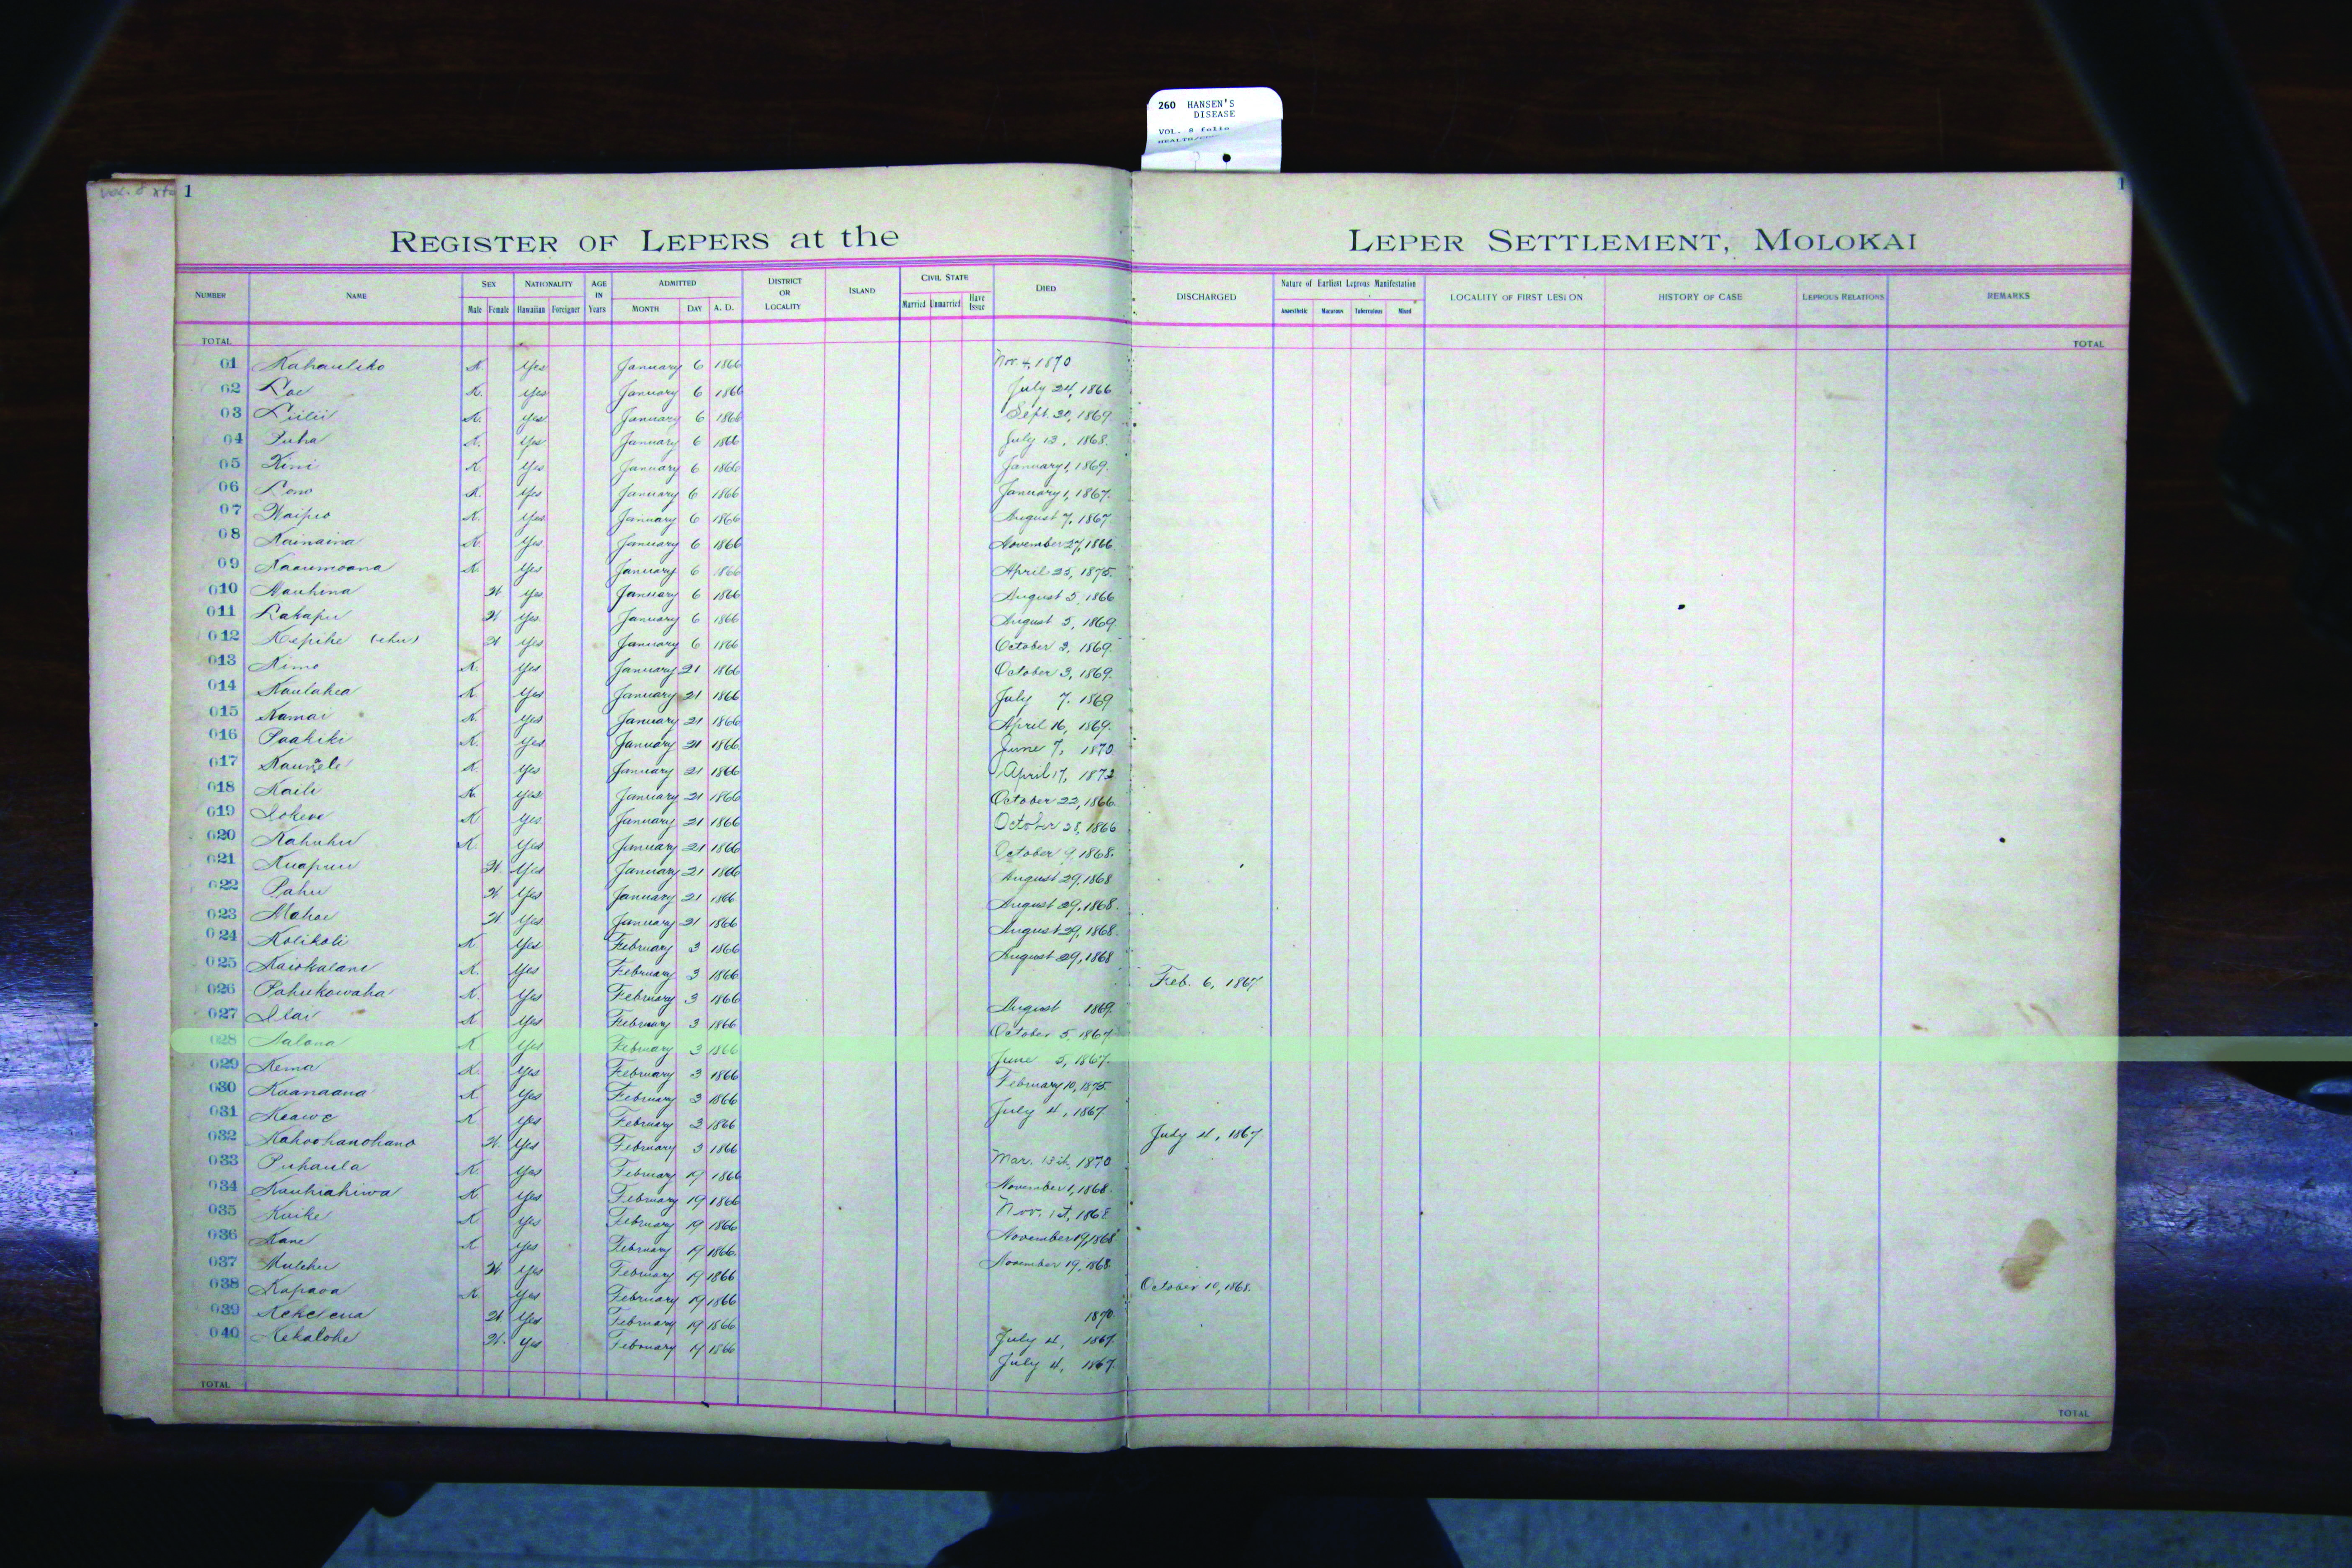 260 HANSEN'S
DISEASE
VOL. 8 folio
1
1
REGISTER OF LEPERS at the LEPER SETTLEMENT, MOLOKAI
NUMBER NAME SEX Male Female NATIONALITY Hawaiian Foreigner AGE IN Years ADMITTED MONTH DAY A. D. DISTRICT OR LOCALITY ISLAND CIVIL STATE Married Unmarried Have Issue DIED DISCHARGED Nature of Earliest Leprous Manifestation Anaesthetic Macurous Tuberculous Mixed LOCALITY OF FIRST LESION HISTORY OF CASE LEPROUS RELATIONS REMARKS
TOTAL TOTAL
01 Kahauliko K. Yes January 6 1866 Nov. 4, 1870
02 Lae K. Yes January 6 1866 July 24, 1866
03 Liilii K. Yes January 6 1866 Sept. 20, 1869.
04 Puha K. Yes January 6 1866 July 13, 1868.
05 Kini K. Yes January 6 1866 January 1, 1869.
06 Lono K. Yes January 6 1866 January 1, 1867.
07 Waipio K. Yes January 6 1866 August 7, 1867
08 Kainaina K. Yes January 6 1866 November 27, 1866
09 Kaaumoana K. Yes January 6 1866 April 25, 1875.
010 Nauhina W Yes January 6 1866 August 5, 1866
011 Lakapu W Yes January 6 1866 August 5, 1869
012 Kepihe (ehu) W Yes January 6 1866 October 3, 1869.
013 Kimo K. Yes January 21 1866 October 3, 1869.
014 Kaulahea K. Yes January 21 1866 July 7, 1869
015 Kamai K. Yes January 21 1866 April 16, 1869.
016 Paakiki K. Yes January 21 1866 June 7, 1870
017 Kauwele K. Yes January 21 1866 April 17, 1872
018 Kaili K. Yes January 21 1866 October 22, 1866.
019 Iokewe K. Yes January 21 1866 October 28, 1866
020 Kahuhu K. Yes January 21 1866 October 9, 1868.
021 Kuapuu W. Yes January 21 1866 August 29, 1868
022 Pahu W Yes January 21 1866 August 29, 1868.
023 Mahoe W Yes January 21 1866 August 29, 1868.
024 Kolikoli K Yes February 3 1866 August 29, 1868
025 Kaiokalani K. Yes February 3 1866 Feb. 6, 1867
026 Pahukowaha K. Yes February 3 1866 August 1869
027 Ilai K Yes February 3 1866 October 5, 1867
028 Aalona K Yes February 3 1866 June 5, 1867.
029 Kema K. Yes February 3 1866 February 10, 1875
030 Kaanaana K Yes February 3 1866 July 4, 1867
031 Keawe K. Yes February 3 1866 July 4, 1867
032 Kahoohanohano W. Yes February 3 1866 Mar. 13th, 1870
033 Puhaula K. Yes February 19 1866 November 1, 1868.
034 Kauhiahiwa K Yes February 19 1866 Nov. 1st, 1868
035 Kuike K Yes February 19 1866 November 19, 1868
036 Kane K Yes February 19 1866. November 19, 1868
037 Mulehu W. Yes February 19 1866 October 10, 1868.
038 Kapaoa K. Yes February 19 1866 1870
039 Kekelena W Yes February 19 1866 July 4, 1867.
040 Kekalohe W. Yes February 19 1866 July 4, 1867.
TOTAL TOTAL